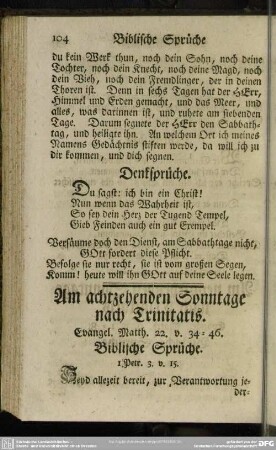 104 Biblische Sprüche
du kein Werk thun, noch dein Sohn, noch deine
Tochter, noch dein Knecht, noch deine Magd, noch
dein Vieh, noch dein Fremdlinger, der in deinen
Thoren ist. Denn in sechs Tagen hat der HErr,
Himmel und Erden gemacht, und das Meer, und
alles, was darinnen ist, und ruhete am siebenden
Tage. Darum segnete der HErr den Sabbath-
tag, und heiligte ihn. An welchem Ort ich meines
Namens Gedächtnis stiften werde, da will ich zu
dir kommen, und dich segnen.
Denksprüche.
Du sagst: ich bin ein Christ!
Nun wenn das Wahrheit ist,
So sey dein Herz der Tugend Tempel,
Gieb Feinden auch ein gut Exempel.
Versäume doch den Dienst, am Sabbathtage nicht,
GOtt fordert diese Pflicht.
Befolge sie nur recht, sie ist vom großen Segen,
Komm! heute will ihn GOtt auf deine Seele legen.
Am achtzehenden Sonntage
nach Trinitatis.
Evangel. Matth. 22. v. 34-46.
Biblische Sprüche.
1 Petr. 3. v. 15.
Seyd allezeit bereit, zur Verantwortung je-
der-